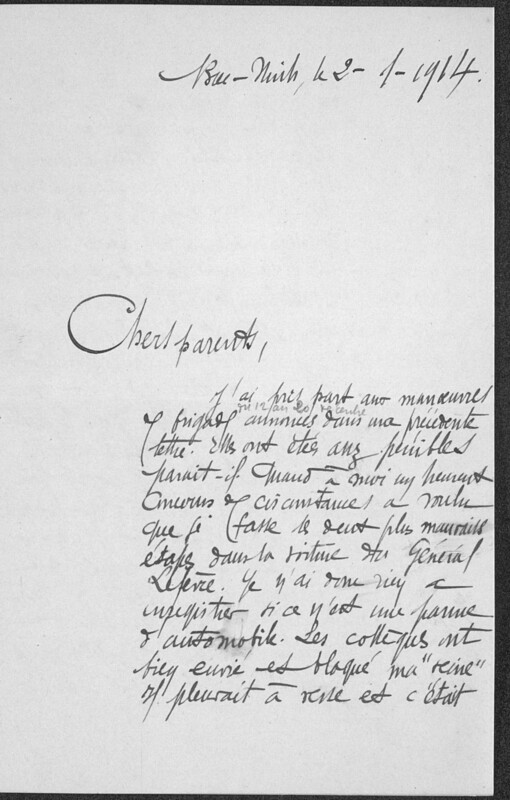 Bac-Ninh, le 2-1-1914.
Chers parents,
J'ai pris part aux manœuvres
du 12 au 20 décembre
de brigade annoncées dans ma précédente
lettre. Elles ont étés assez pénibles
parait-il. Quand à moi un heureux
concours de circonstances a voulu
que je fasse les deux plus mauvaises
étapes dans la voiture du Général
Lefèvre. Je n'ai donc rien a
enregistrer si ce n'est une panne
d'automobile. Les collègues ont
bien envié et blagué ma "veine"
Il pleuvait à verse et c'était